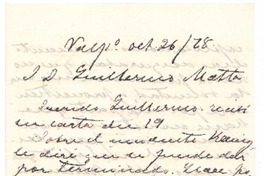 Valpº. oct 26/78
S. D. Guillermo Matta
Querido Guillermo: recibí
su carta del 19
Sobre el
le diré que se puede dar
por terminado. Hace